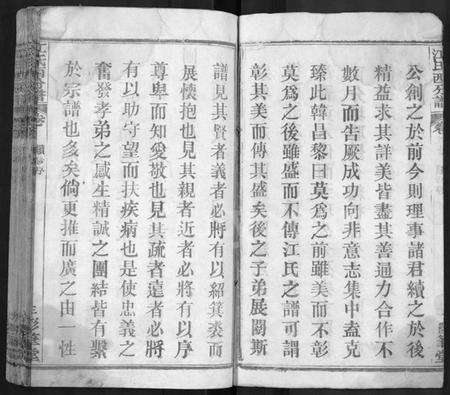 公創之於前今則理事諸君續之於後
精益求其詳美皆盡其善通力合作不
數月而告厥成功向非意志集中盍克
臻此韓昌黎曰莫為之前雖美而不彰
莫為之後雖盛而不傳江氏之譜可謂
彰其美而傳其盛矣後之子弟展閱斯
譜見其賢者義者必將有以紹其裘而
展懷抱也見其親者近者必將有以序
尊卑而知愛敬也見其疏者遠者必將
有以助守望而扶疾病也是使忠義之
奮發孝弟之感生精誠之團結皆有繫
於宗譜也多矣倘更推而廣之由一性